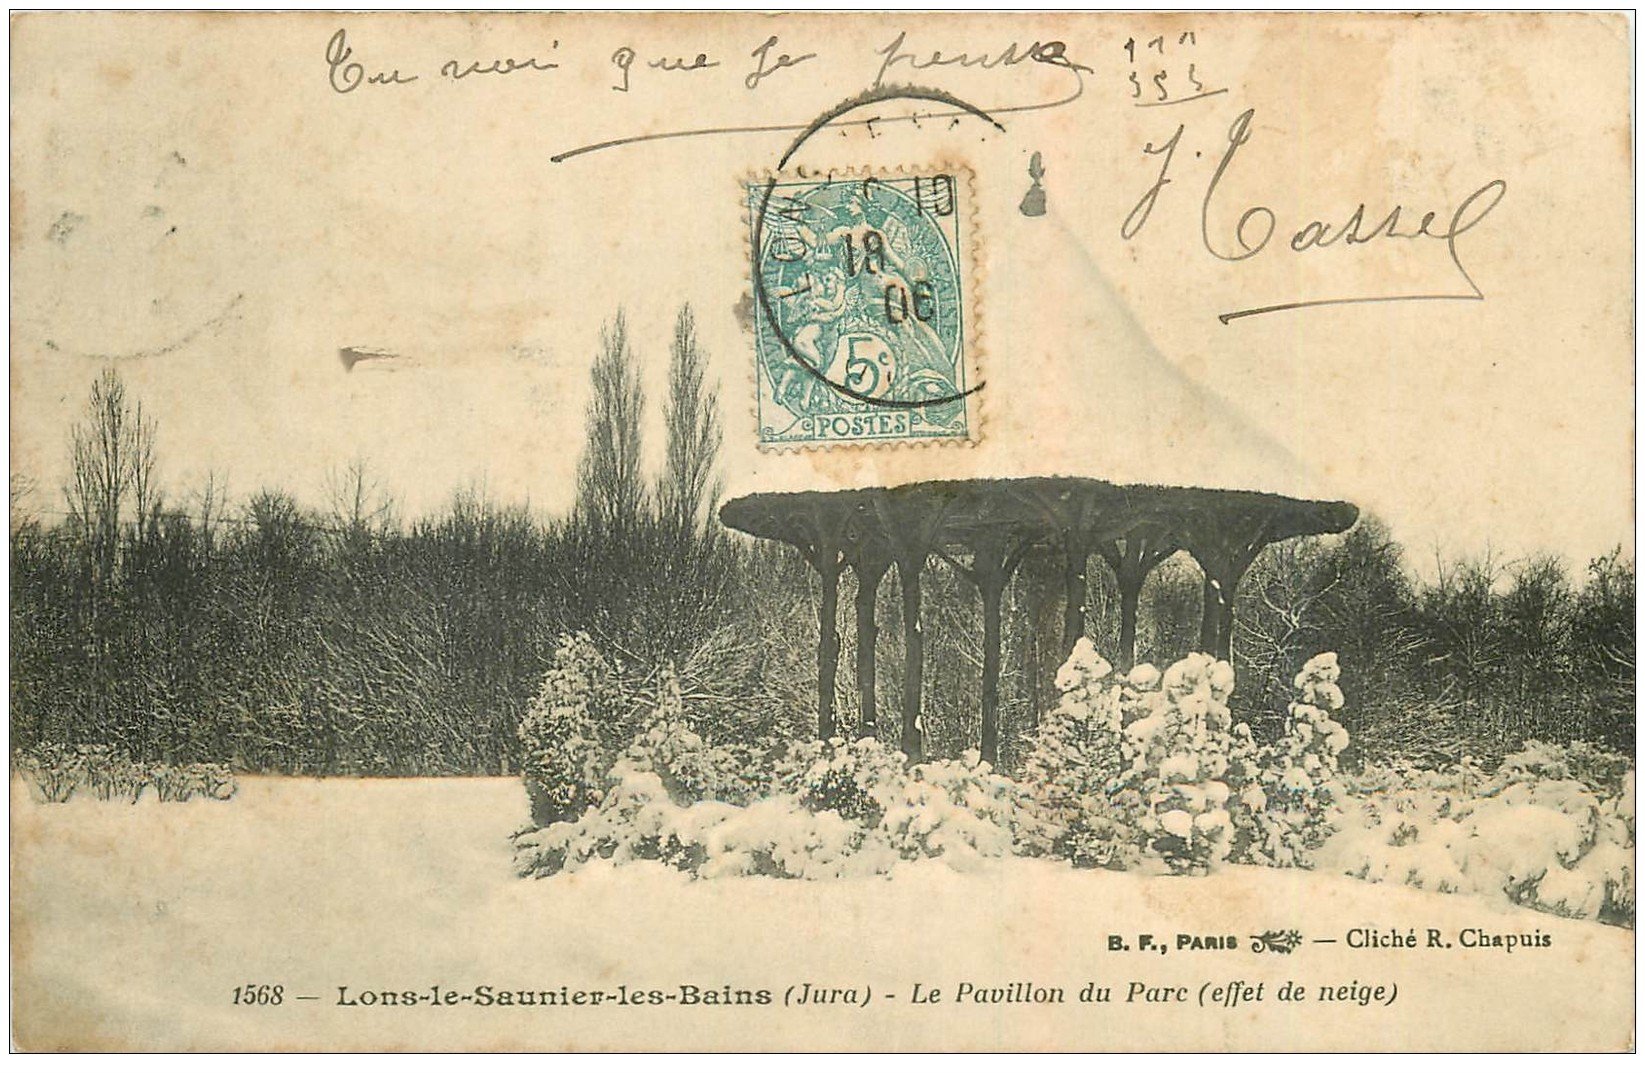 Tu voi que je pense
J. Cassel
LON
10
18
06
5c
POSTES
B. F., PARIS — Cliché R. Chapuis
1568 — Lons-le-Saunier-les-Bains (Jura) - Le Pavillon du Parc (effet de neige)